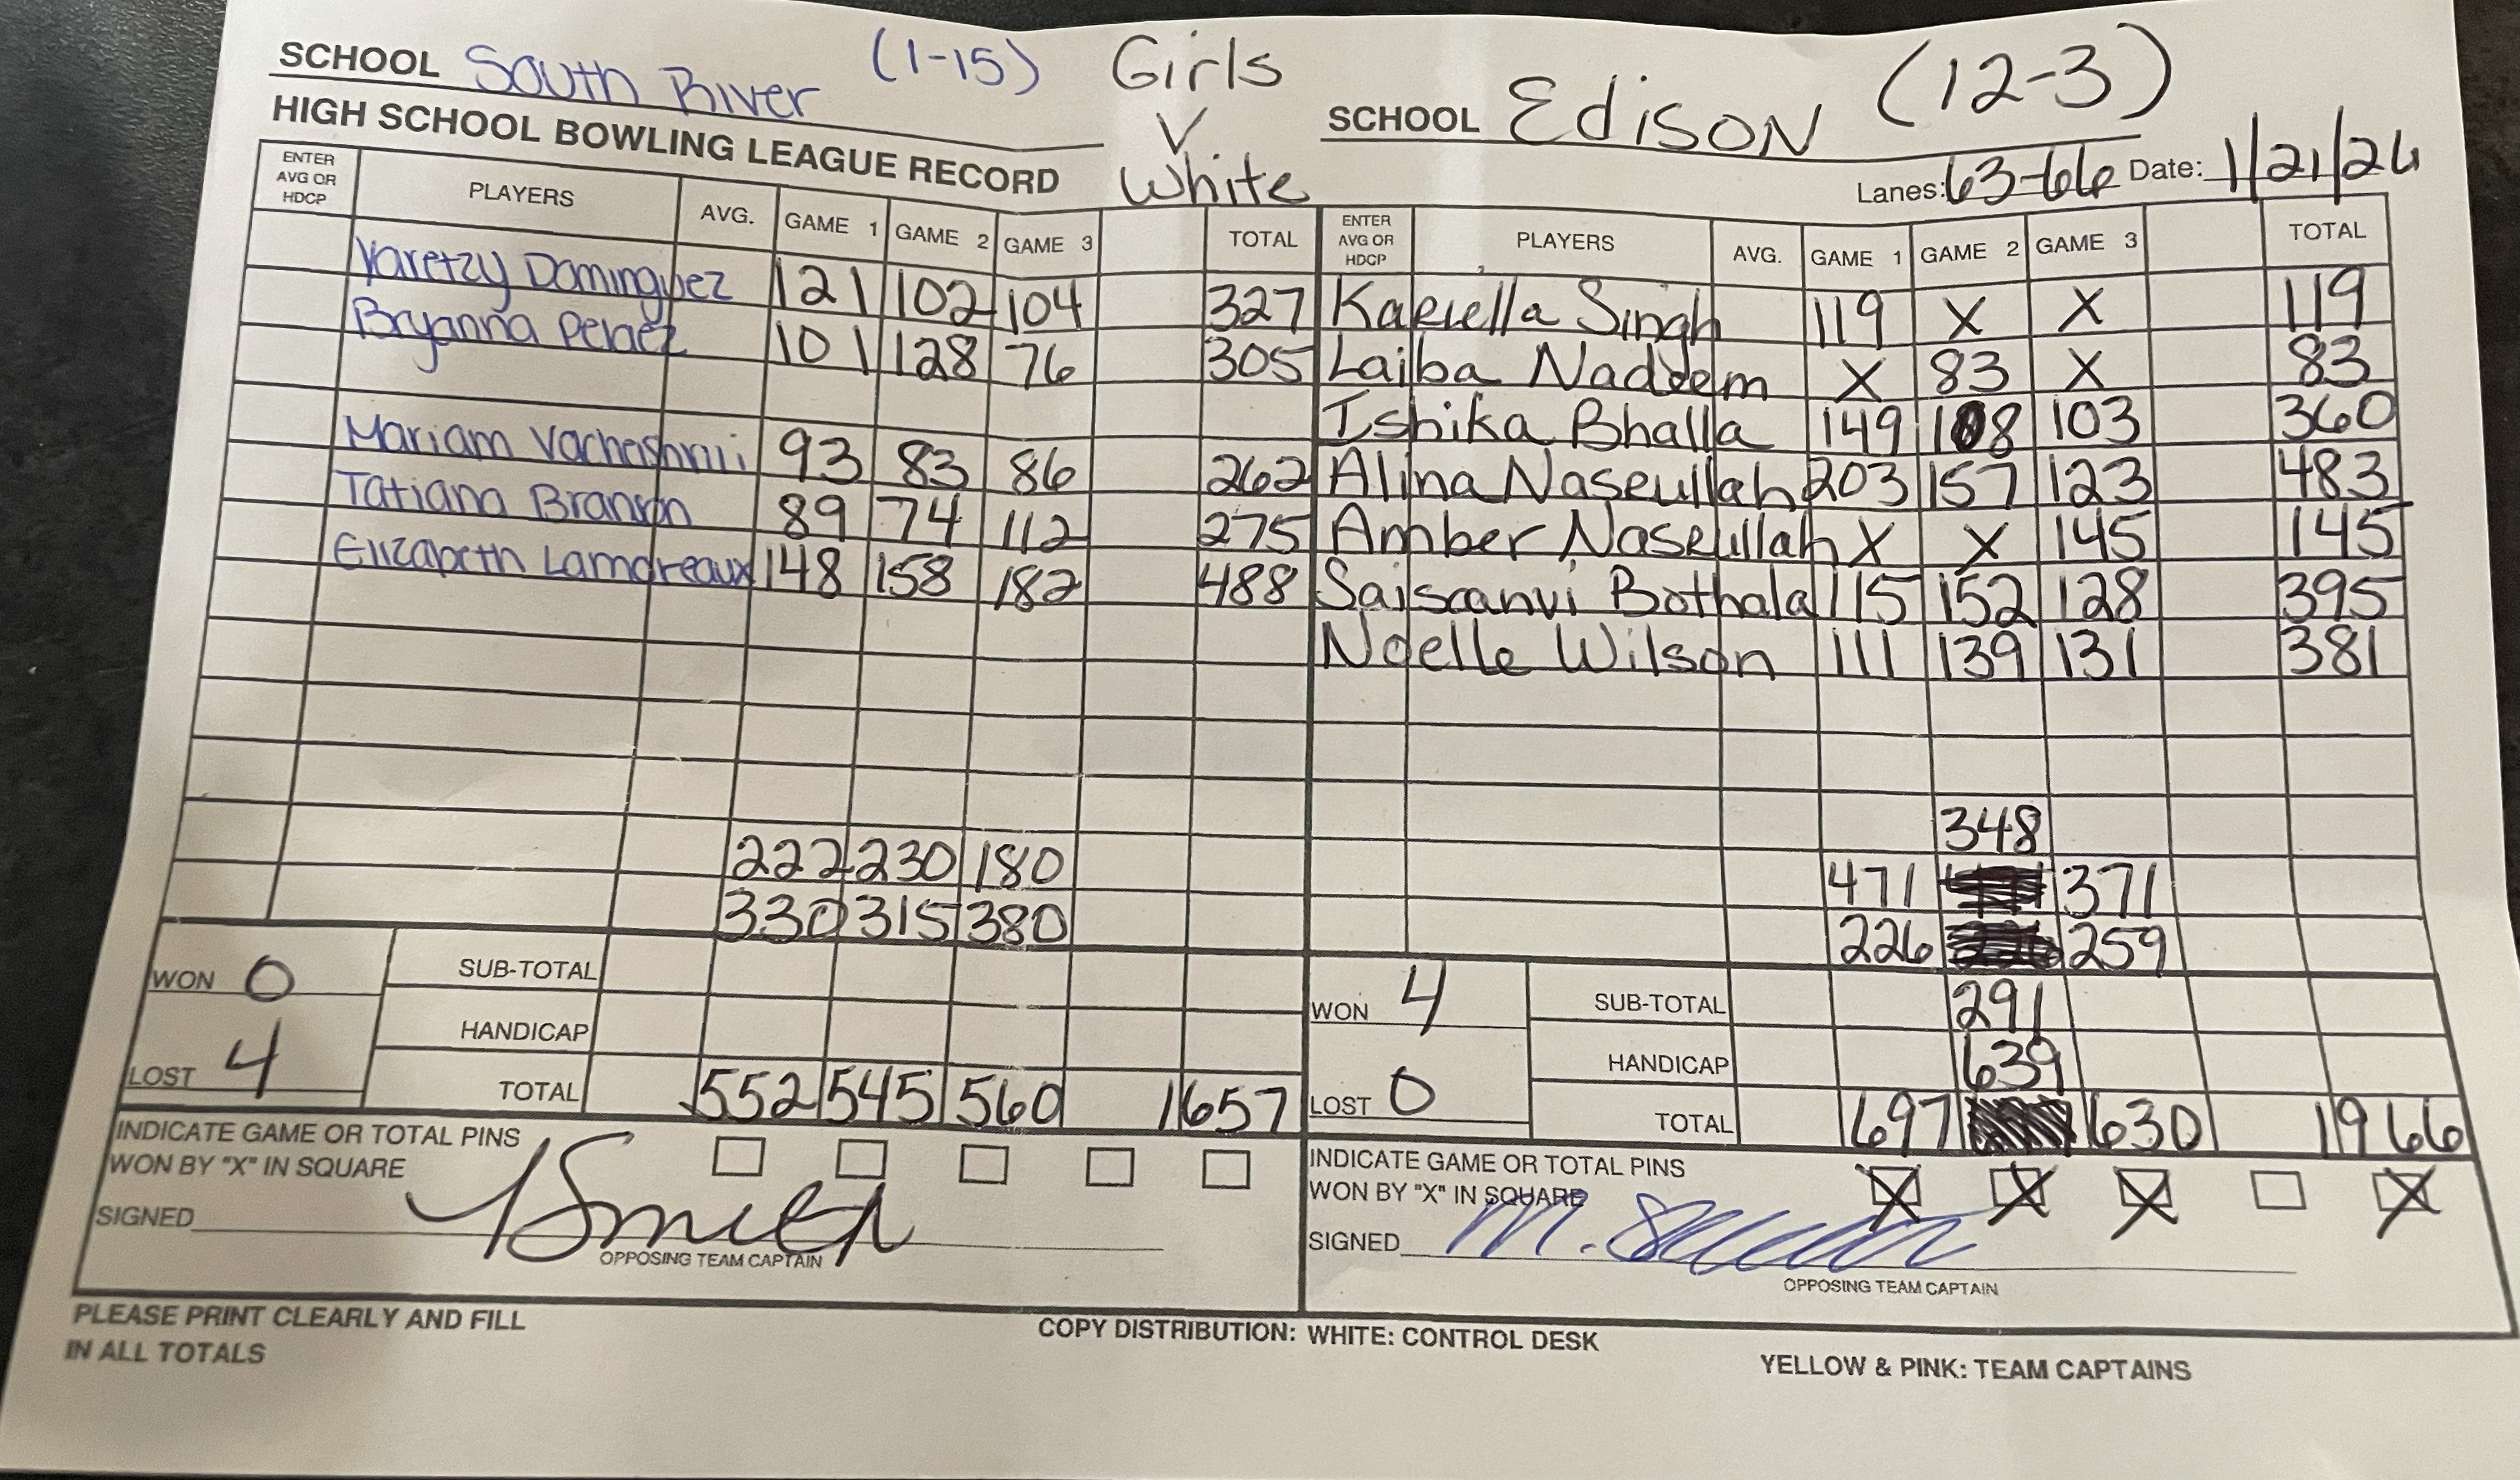 SCHOOL South River (1-15) Girls
V
White
SCHOOL Edison (12-3)
HIGH SCHOOL BOWLING LEAGUE RECORD
Lanes: 63-66 Date: 1/21/26
ENTER AVG OR HDCP PLAYERS AVG. GAME 1 GAME 2 GAME 3 TOTAL ENTER AVG OR HDCP PLAYERS AVG. GAME 1 GAME 2 GAME 3 TOTAL
Yaretzy Dominguez 121 102 104 327 Karella Singh 119 X X 119
Bryanna Pelaez 101 128 76 305 Laiba Naddem X 83 X 83
Ishika Bhalla 149 108 103 360
Mariam 93 83 86 262 Alina Naseullah 203 157 123 483
Tatiana Branson 89 74 112 275 Amber Naseullah X X 145 145
Elizabeth Lamoreaux 148 158 182 488 Saisaanvi Bothala 115 152 128 395
Noelle Wilson 111 139 131 381
348
222 230 180 471 371
330 315 380 226 259
WON 0 SUB-TOTAL WON 4 SUB-TOTAL 291
HANDICAP HANDICAP 639
LOST 4 TOTAL 552 545 560 1657 LOST 0 TOTAL 697 630 1966
INDICATE GAME OR TOTAL PINS
WON BY "X" IN SQUARE
SIGNED Smith
OPPOSING TEAM CAPTAIN
INDICATE GAME OR TOTAL PINS
WON BY "X" IN SQUARE X X X X
SIGNED M.
OPPOSING TEAM CAPTAIN
PLEASE PRINT CLEARLY AND FILL
IN ALL TOTALS
COPY DISTRIBUTION: WHITE: CONTROL DESK
YELLOW & PINK: TEAM CAPTAINS